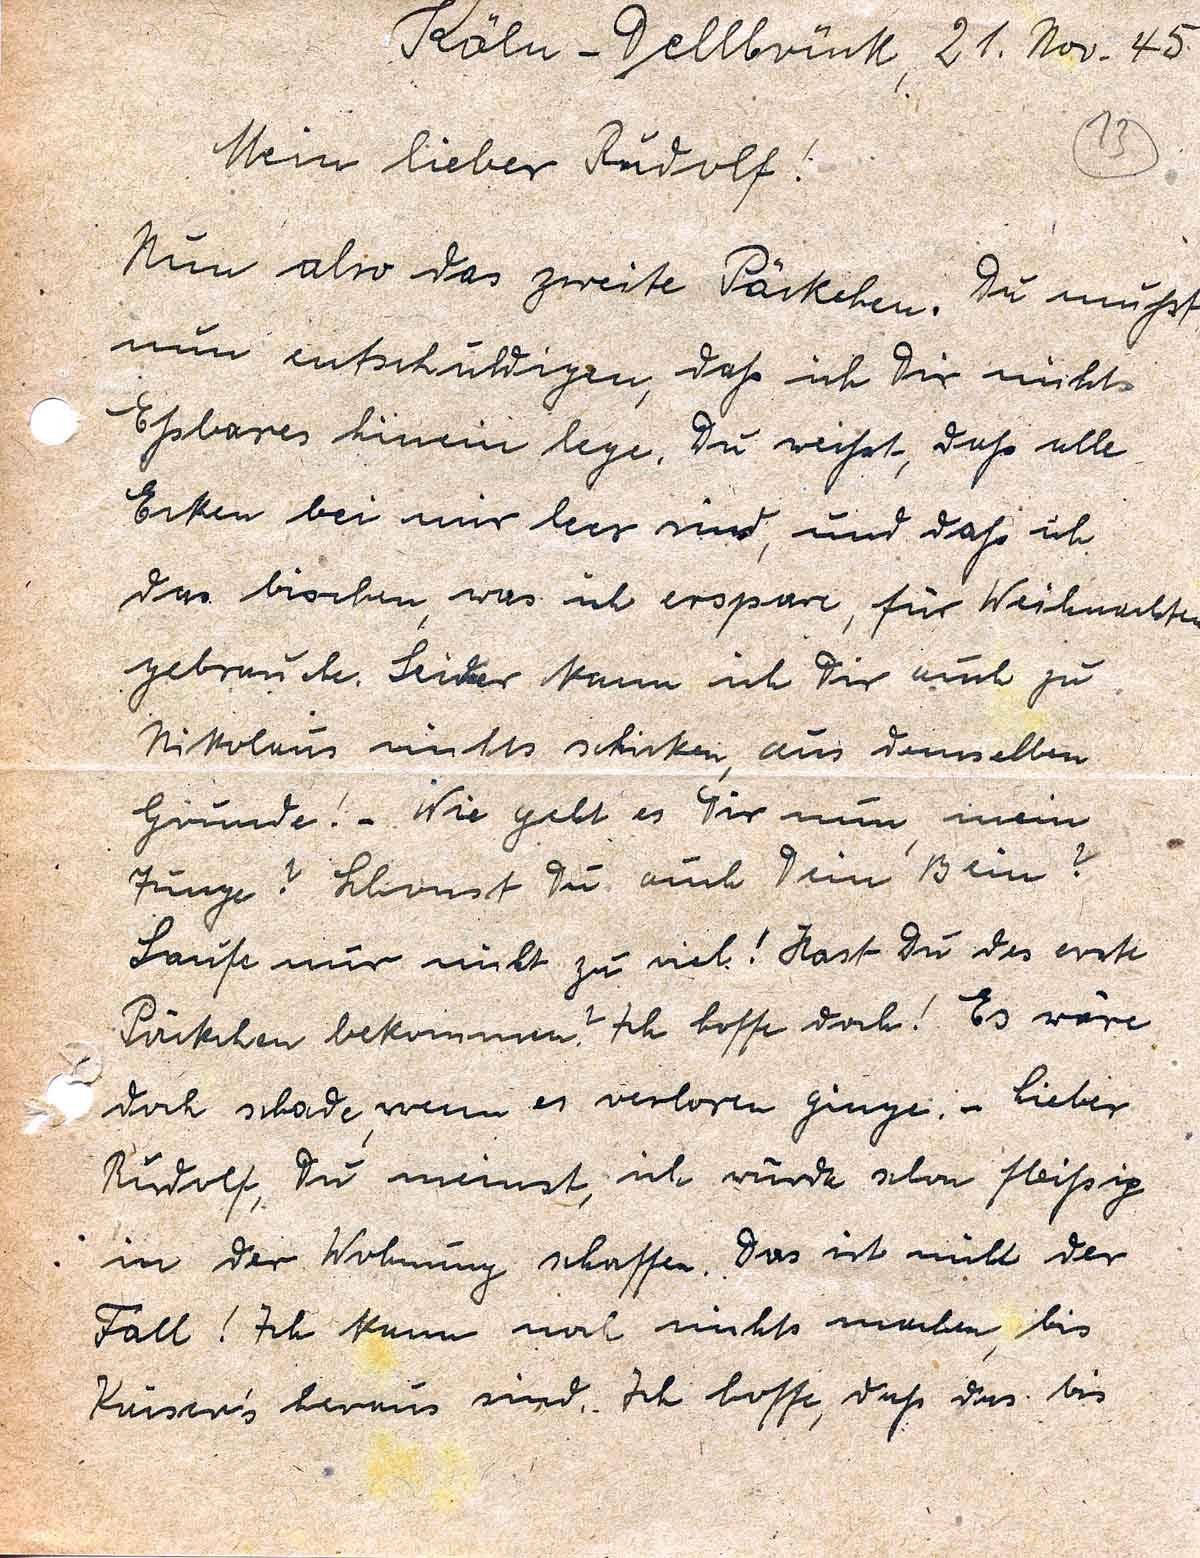 Köln-Dellbrück, 21. Nov. 45
13
Mein lieber Rudolf!
Nun also das zweite Päckchen. Du mußt
nun entschuldigen, daß ich Dir nichts
Eßbares hinein lege. Du weißt, daß alle
Ecken bei mir leer sind, und daß ich
das bischen, was ich erspare, für Weihnachten
gebrauche. Leider kann ich Dir auch zu
Nikolaus nichts schicken, aus demselben
Grunde! - Wie geht es Dir nun, mein
Junge? Schonst Du auch Dein Bein?
Laufe nur nicht zu viel! Hast Du das erste
Päckchen bekommen? Ich hoffe doch! Es wäre
doch schade, wenn es verloren ginge. - Lieber
Rudolf, Du meinst, ich würde schon fleißig
in der Wohnung schaffen. Das ist nicht der
Fall! Ich kann noch nichts machen, bis
Kaiser's heraus sind. Ich hoffe, daß das bis